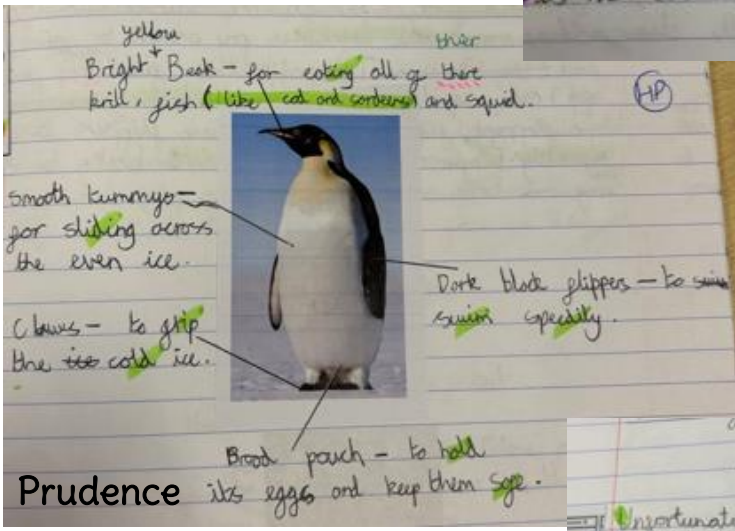 yellow
Bright + Beak - for eating all of there
ther
krill, fish (like cod and sardeens) and squid.
HP
Smooth tummys -
for sliding across
the even ice.
Dark black flippers - to swim
swim speedily.
Claws - to grip
the ice cold ice.
Brood pouch - to hold
its eggs and keep them safe.
Prudence
Unfortunat